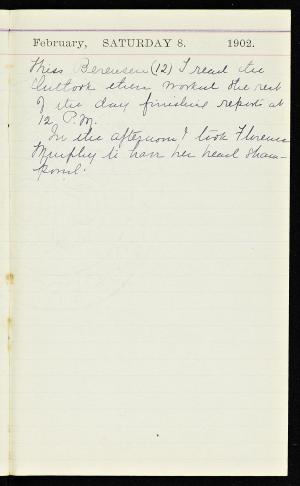 February, SATURDAY 8. 1902.
Miss Berenson (12) I read the
Outlook then worked the rest
of the day finishing reports at
12 P.M.
In the afternoon I took Florence
Murphy to have her head sham-
pooed.